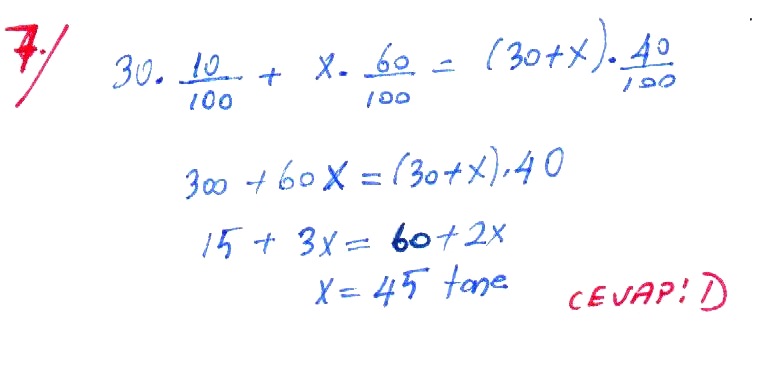 7/ 30 . 10/100 + x . 60/100 = (30+x) . 40/100
300 + 60x = (30+x).40
15 + 3x = 60 + 2x
x = 45 tane
CEVAP: D